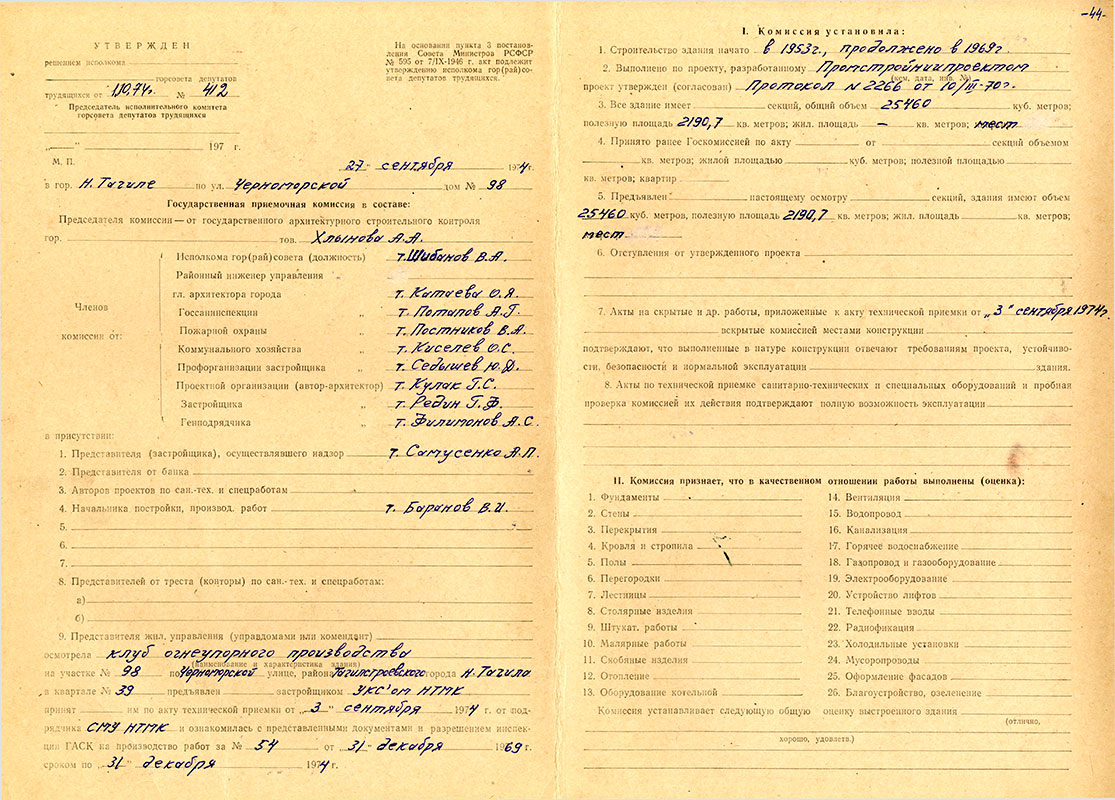 УТВЕРЖДЕН
решением исполкома
горсовета депутатов
трудящихся от 1.10.74г. № 412
Председатель исполнительного комитета
горсовета депутатов трудящихся
„ “ 197 г.
М. П.
На основании пункта 3 постанов-
ления Совета Министров РСФСР
№ 595 от 7/IX-1946 г. акт подлежит
утверждению исполкома гор(рай)со-
вета депутатов трудящихся.
„27“ сентября 1974г.
в гор. Н. Тагиле по ул. Черноморской дом № 98
Государственная приемочная комиссия в составе:
Председателя комиссии — от государственного архитектурного строительного контроля
гор. тов. Хлынова А.А.
Членов
комиссии от:
Исполкома гор(рай)совета (должность) т. Шибанов В.А.
Районный инженер управления
гл. архитектора города т. Катаева О.Я.
Госсанинспекции „ т. Потапов А.Г.
Пожарной охраны „ т. Постников В.А.
Коммунального хозяйства „ т. Киселев О.С.
Профорганизации застройщика „ т. Седышев Ю.Д.
Проектной организации (автор-архитектор) т. Кулак Г.С.
Застройщика „ т. Редин Г.Ф.
Генподрядчика „ т. Филимонов А.С.
в присутствии:
1. Представителя (застройщика), осуществлявшего надзор т. Самусенко А.П.
2. Представителя от банка
3. Авторов проектов по сан.-тех. и спецработам
4. Начальника постройки, производ. работ т. Баранов В.И.
5.
6.
7.
8. Представителей от треста (конторы) по сан.-тех. и спецработам:
а)
б)
9. Представителя жил. управления (управдомами или комендант)
осмотрела клуб огнеупорного производства
(наименование и характеристика здания)
на участке № 98 по Черноморской улице, района Тагилстроевского города Н. Тагила
в квартале № 39 предъявлен застройщиком УКС'ом НТМК
принят им по акту технической приемки от „3“ сентября 1974 г. от под-
рядчика СМУ НТМК и ознакомилась с представленными документами и разрешением инспек-
ции ГАСК на производство работ за № 54 от „31“ декабря 1969г.
сроком по „31“ декабря 1974г.
-44-
I. Комиссия установила:
1. Строительство здания начато в 1953г., продолжено в 1969г.
2. Выполнено по проекту, разработанному Промстройниипроектом
(кем, дата, инв. №)
проект утвержден (согласован) Протокол № 2266 от 10/III-70г.
3. Все здание имеет секций, общий объем 25460 куб. метров;
полезную площадь 2190,7 кв. метров; жил. площадь — кв. метров; мест
4. Принято ранее Госкомиссией по акту от секций объемом
кв. метров; жилой площадью куб. метров; полезной площадью
кв. метров; квартир
5. Предъявлен настоящему осмотру секций, здания имеют объем
25460 куб. метров, полезную площадь 2190,7 кв. метров; жил. площадь кв. метров;
мест
6. Отступления от утвержденного проекта
7. Акты на скрытые и др. работы, приложенные к акту технической приемки от „3“ сентября 1974г.
вскрытые комиссией местами конструкции
подтверждают, что выполненные в натуре конструкции отвечают требованиям проекта, устойчиво-
сти, безопасности и нормальной эксплуатации здания.
8. Акты по технической приемке санитарно-технических и специальных оборудований и пробная
проверка комиссией их действия подтверждают полную возможность эксплуатации
II. Комиссия признает, что в качественном отношении работы выполнены (оценка):
1. Фундаменты
2. Стены
3. Перекрытия
4. Кровля и стропила
5. Полы
6. Перегородки
7. Лестницы
8. Столярные изделия
9. Штукат. работы
10. Малярные работы
11. Скобяные изделия
12. Отопление
13. Оборудование котельной
14. Вентиляция
15. Водопровод
16. Канализация
17. Горячее водоснабжение
18. Газопровод и газооборудование
19. Электрооборудование
20. Устройство лифтов
21. Телефонные вводы
22. Радиофикация
23. Холодильные установки
24. Мусоропроводы
25. Оформление фасадов
26. Благоустройство, озеленение
Комиссия устанавливает следующую общую оценку выстроенного здания
(отлично,
хорошо, удовлетв.)